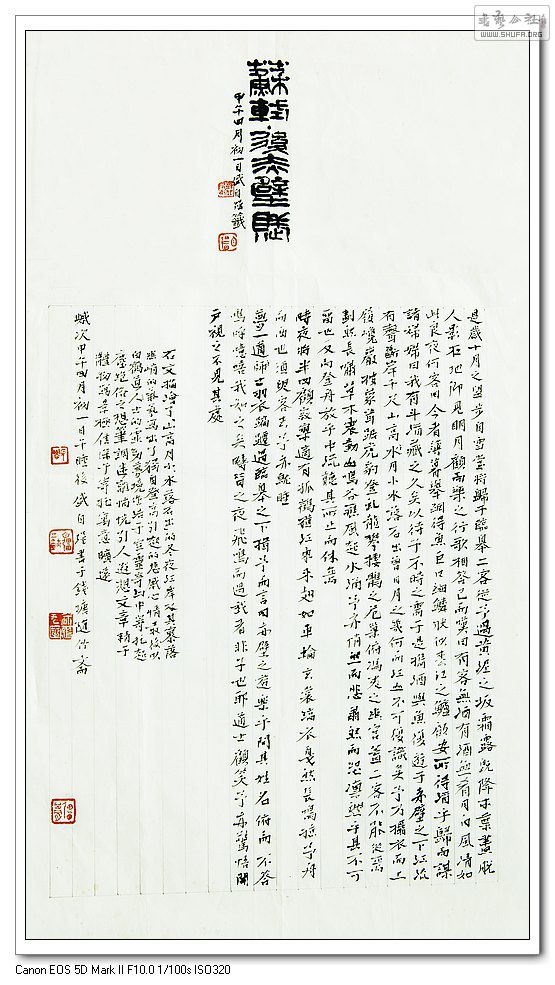 书艺公社
WWW.SHUFA.ORG
蘇軾後赤壁賦
甲午四月初一日盛自強籤
是歲十月之望步自雪堂將歸于臨皋二客從予過黃泥之坂霜露既降木葉盡脫
人影在地仰見明月顧而樂之行歌相答已而嘆曰有客無酒有酒無肴月白風清如
此良夜何客曰今者薄暮舉網得魚巨口細鱗狀似松江之鱸顧安所得酒乎歸而謀
諸婦婦曰我有斗酒藏之久矣以待子不時之需于是攜酒與魚復遊于赤壁之下江流
有聲斷岸千尺山高水小水落石出曾日月之幾何而江山不可復識矣予乃攝衣而上
履巉巖披蒙茸踞虎豹登虬龍攀棲鶻之危巢俯馮夷之幽宮蓋二客不能從焉
劃然長嘯草木震動山鳴谷應風起水涌予亦悄然而悲肅然而恐凜然乎其不可
留也反而登舟放乎中流聽其所止而休焉
時夜將半四顧寂寥適有孤鶴橫江東來翅如車輪玄裳縞衣戛然長鳴掠予舟
而西也須臾客去予亦就睡
夢一道士羽衣蹁躚過臨皋之下揖予而言曰赤壁之遊樂乎問其姓名俯而不答
嗚呼噫嘻我知之矣疇昔之夜飛鳴而過我者非子也耶道士顧笑予亦驚悟開
戶視之不見其處
右文描繪了山高月小水落石出的冬夜江岸
歲次甲午四月初一日午睡後盛自強書于錢塘
Canon EOS 5D Mark II F10.0 1/100s ISO320